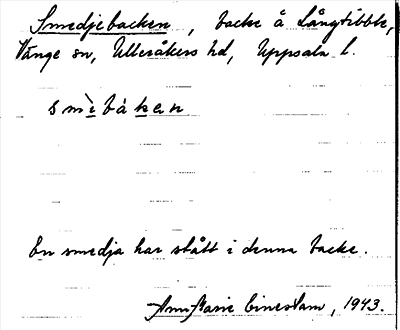 Smedjebacken, backe å Långtibble,
Vänge sn, Ulleråkers hd, Uppsala l.
smìbáken
En smedja har stått i denna backe.
Ann Marie, 1943.